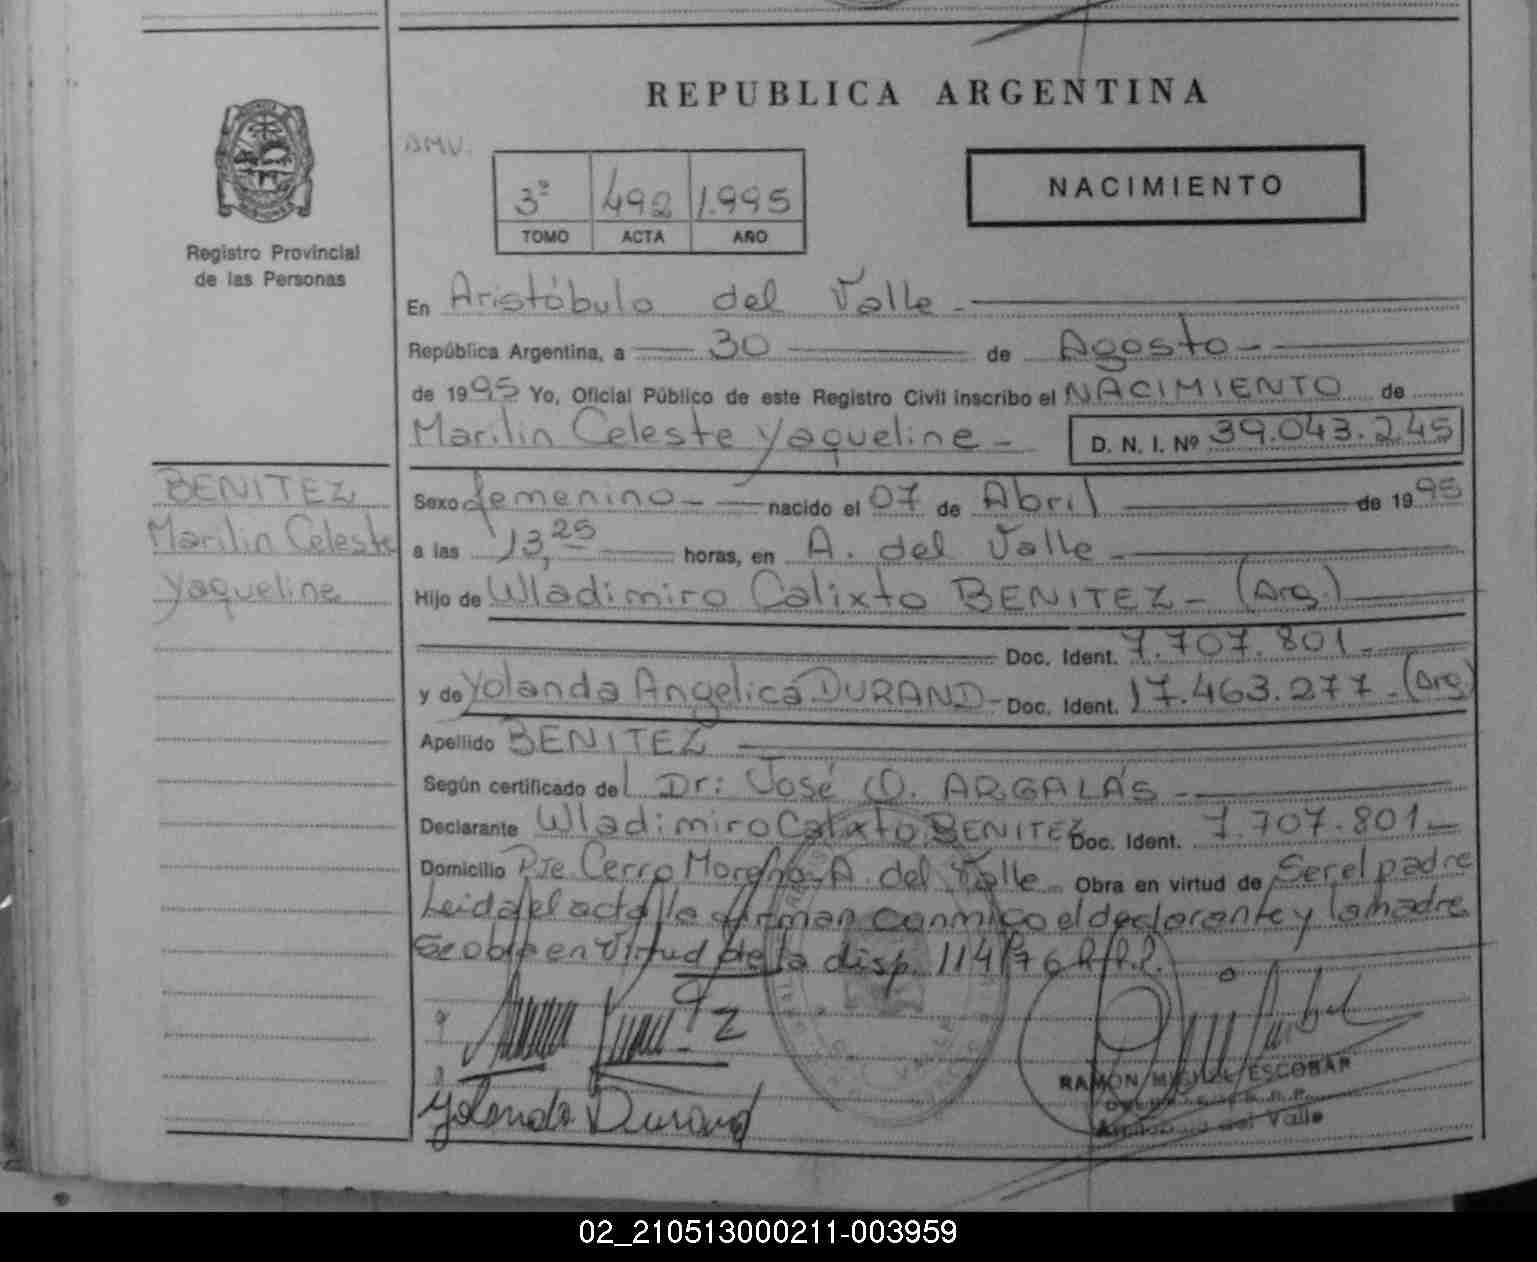 REPUBLICA ARGENTINA
Registro Provincial
de las Personas
3º 492 1.995
TOMO ACTA AÑO
NACIMIENTO
En Aristóbulo del Valle -
República Argentina, a 30 de Agosto -
de 1995 Yo, Oficial Público de este Registro Civil inscribo el NACIMIENTO de
Marilin Celeste Yaqueline - D. N. I. Nº 39.043.245
BENITEZ
Marilin Celeste
Yaqueline
Sexo femenino - nacido el 07 de Abril de 1995
a las 13,25 horas, en A. del Valle -
Hijo de Wladimiro Calixto BENITEZ - (Arg.)
Doc. Ident. 7.707.801 -
y de Yolanda Angelica DURAND - Doc. Ident. 17.463.277 - (Arg)
Apellido BENITEZ -
Según certificado del Dr: José O. ARGALÁS -
Declarante Wladimiro Calixto BENITEZ Doc. Ident. 7.707.801 -
Domicilio Pje Cerro Moreno - A. del Valle - Obra en virtud de Ser el padre
Leida el acta la firman conmigo el declarante y la madre
Se obra en virtud de la disp. 114/76
Yolanda Durand
RAMON MIGUEL ESCOBAR
del Valle
02_210513000211-003959